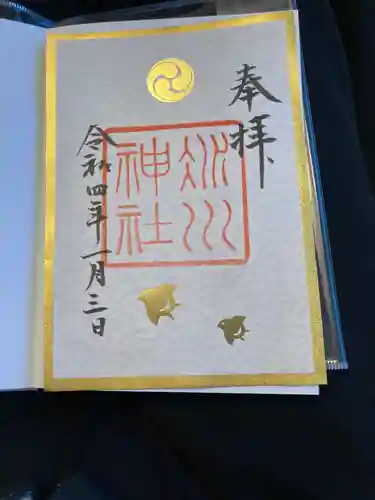 奉拝
冰川
神社
令和四年一月三日